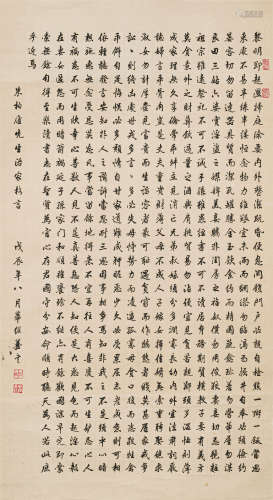 黎明即起灑掃庭除要內外整潔既昏便息關鎖門戶必親自檢點一粥一飯當思
來處不易半絲半縷恒念物力維艱宜未雨而綢繆毋臨渴而掘井自奉必須儉約
宴客切勿留連器具質而潔瓦缶勝金玉飲食約而精園蔬愈珍饈勿營華屋勿謀
良田三姑六婆實淫盜之媒婢美妾嬌非閨房之福童僕勿用俊美妻妾切忌艷妝
祖宗雖遠祭祀不可不誠子孫雖愚經書不可不讀居身務期質樸教子要有義方
莫貪意外之財莫飲過量之酒與肩挑貿易毋佔便宜見貧苦親鄰須多溫恤刻薄
成家理無久享倫常乖舛立見消亡兄弟叔姪須分多潤寡長幼內外宜法肅辭嚴聽
婦言乖骨肉豈是丈夫重資財薄父母不成人子嫁女擇佳婿毋索重聘娶媳求
淑女勿計厚奩見富貴而生諂容者最可恥遇貧窮而作驕態者賤莫甚居家戒爭訟
訟則終凶處世戒多言言多必失勿恃勢力而凌逼孤寡毋貪口腹而恣殺生禽
乖僻自是悔誤必多頹惰自甘家道難成狎暱惡少久必受其累屈志老成急則可相
依輕聽發言安知非人之譖訴當忍耐三思因事相爭焉知非我之不是須平心暗想施
惠無念受恩莫忘凡事當留餘地得意不宜再往人有喜慶不可生妒忌心人
有禍患不可生喜幸心善欲人見不是真善惡恐人知便是大惡見色而起淫心報
在妻女匿怨而用暗箭禍延子孫家門和順雖饔飧不繼亦有餘歡國課早完即囊
橐無餘自得至樂讀書志在聖賢為官心存君國守分安命順時聽天為人若此庶
乎近焉
朱柏廬先生治家格言
戊辰年八月